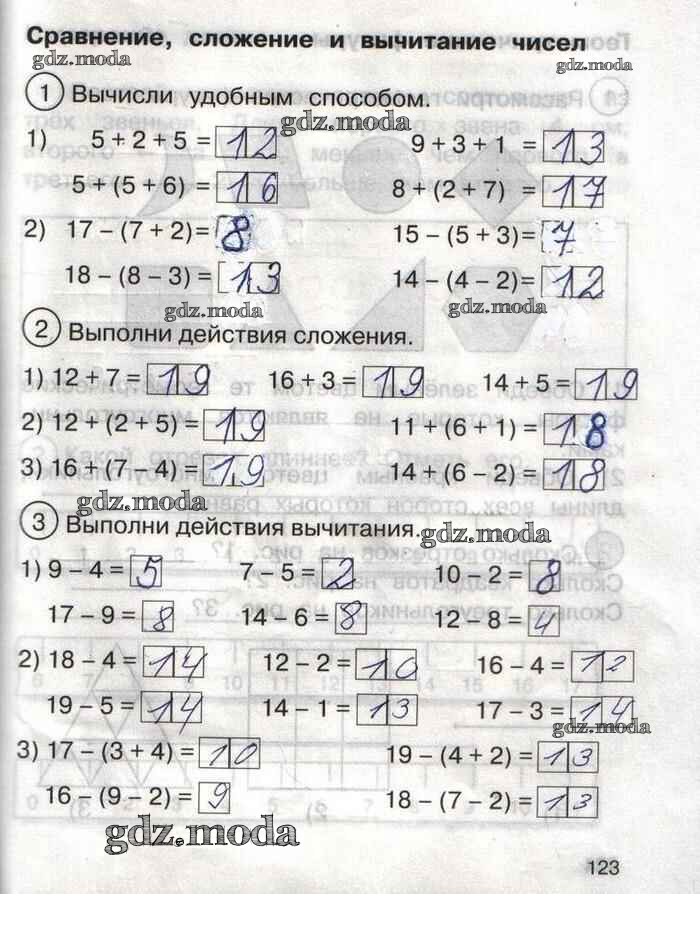 Сравнение, сложение и вычитание чисел
gdz.moda gdz.moda
1 Вычисли удобным способом.
gdz.moda
1) 5 + 2 + 5 = 12 9 + 3 + 1 = 13
5 + (5 + 6) = 16 8 + (2 + 7) = 17
2) 17 – (7 + 2)= 8 15 – (5 + 3)= 7
18 – (8 – 3) = 13 14 – (4 – 2)= 12
gdz.moda gdz.moda
2 Выполни действия сложения.
1) 12 + 7 = 19 16 + 3 = 19 14 + 5 = 19
2) 12 + (2 + 5) = 19 11 + (6 + 1) = 18
3) 16 + (7 – 4) = 19 14 + (6 – 2) = 18
gdz.moda
3 Выполни действия вычитания.
gdz.moda
1) 9 – 4 = 5 7 – 5 = 2 10 – 2 = 8
17 – 9 = 8 14 – 6 = 8 12 – 8 = 4
2) 18 – 4 = 14 12 – 2 = 10 16 – 4 = 12
19 – 5 = 14 14 – 1 = 13 17 – 3 = 14
gdz.moda
3) 17 – (3 + 4) = 10 19 – (4 + 2) = 13
16 – (9 – 2) = 9 18 – (7 – 2) = 13
gdz.moda
123